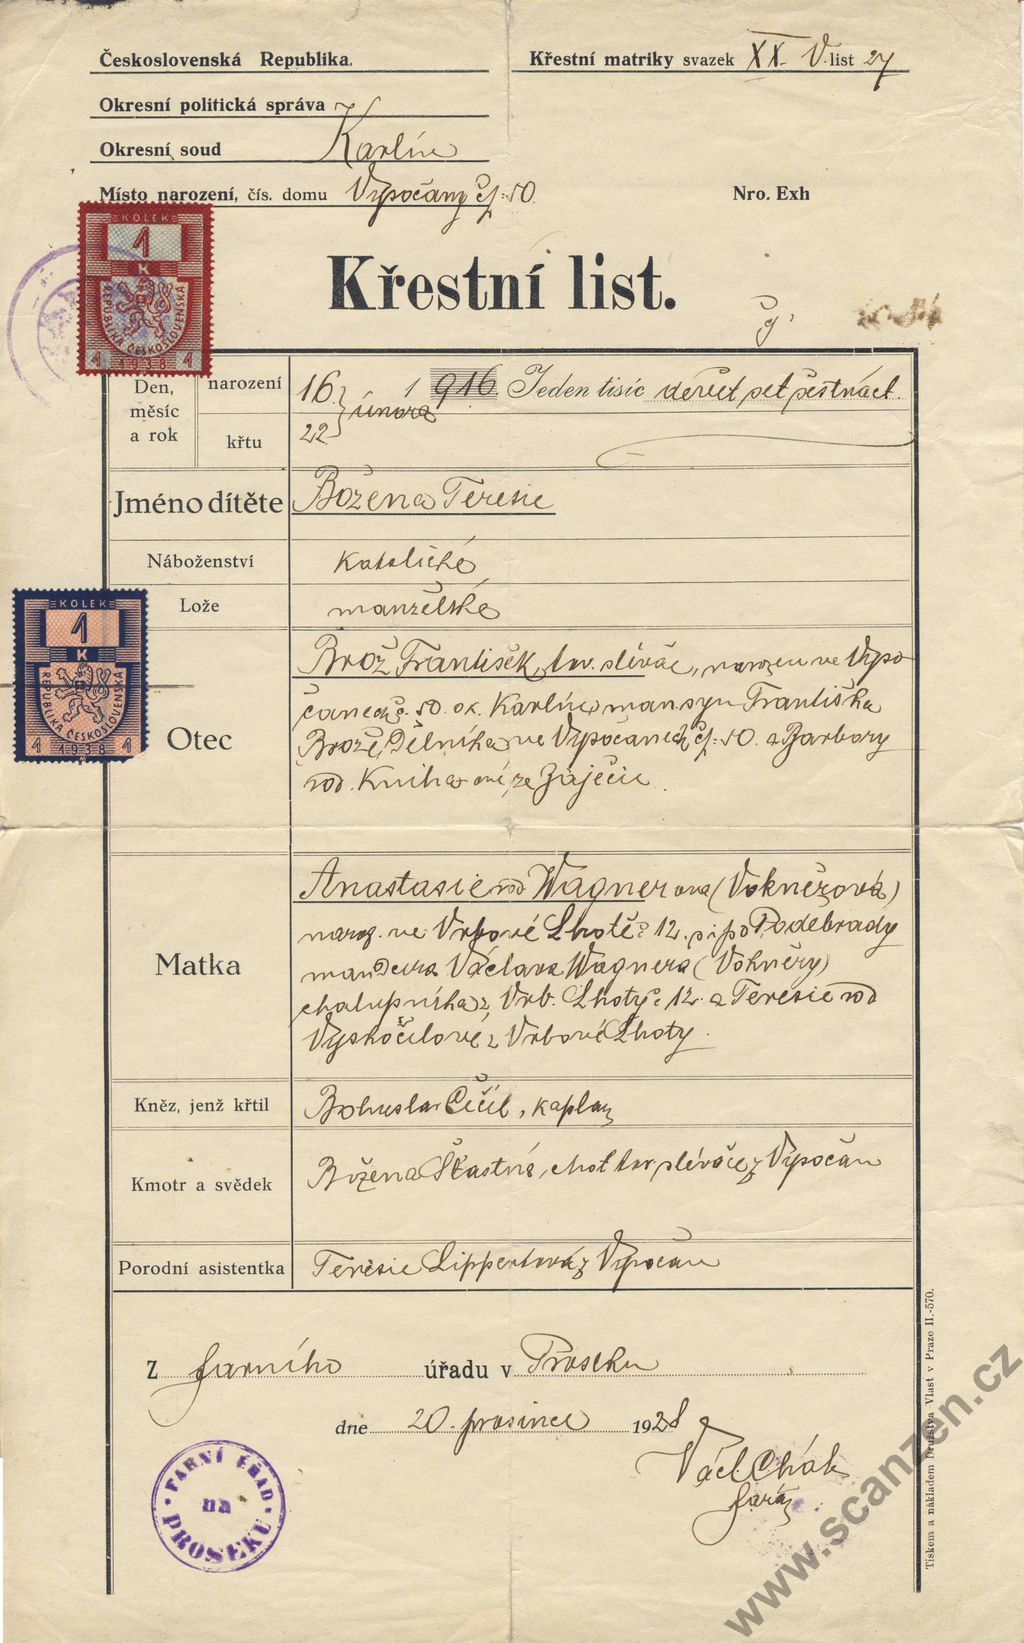 Československá Republika.
Křestní matriky svazek XX. V. list 27
Okresní politická správa
Okresní soud Karlín
Místo narození, čís. domu Vysočany čp: 50.
Nro. Exh
KOLEK
1
K
REPUBLIKA ČESKOSLOVENSKÁ
1 1938 1
Křestní list.
Den, měsíc a rok
narození 16 února 1 916. Jeden tisíc devět set šestnáct
křtu 22
Jméno dítěte Božena Teresie
Náboženství katolické
Lože manželské
KOLEK
1
K
REPUBLIKA ČESKOSLOVENSKÁ
1 1938 1
Otec
Brož František, tov. slévač, narozen ve Vyso
čanech č. 50. ok. Karlín, man. syn Františka
Brože, dělníka ve Vysočanech čp: 50. a Barbory
rod. Knihové, ze Zaječic.
Matka
Anastasie rod Wagnerova (Voknérová)
naroz. ve Vrbové Lhotě č 12. p. po Poděbrady
man dcera Václava Wagnera (Voknéry)
chalupníka z Vrb. Lhoty č 12. a Teresie rod
Vyskočilové z Vrbové Lhoty.
Kněz, jenž křtil Bohuslav Čečil, kaplan
Kmotr a svědek Božena Šťastná, choť tov. slévače z Vysočan
Porodní asistentka Teresie Lippertová z Vysočan
Z farního úřadu v Proseku
dne 20. prosince 1928
Václ. Chák
farář
FARNÍ ÚŘAD
na
PROSEKU
Tiskem a nákladem Družstva Vlast v Praze II.-570.
www.scanzen.cz